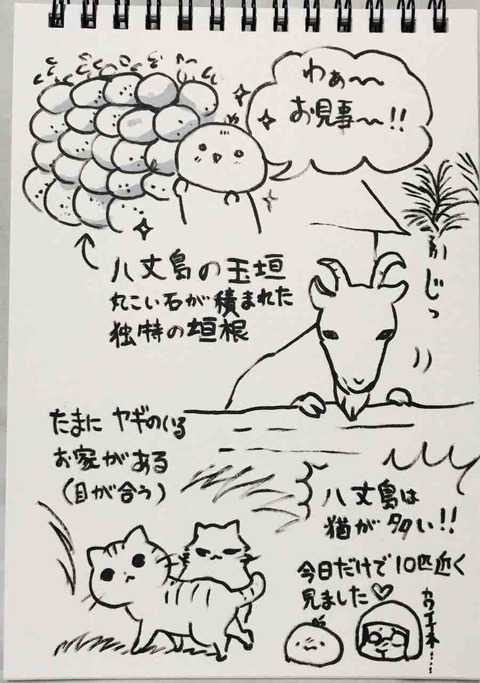 わぁ〜〜
お見事〜!!
八丈島の玉垣
丸こい石が積まれた
独特の垣根
かじっ
たまに ヤギのいる
お家がある
(目が合う)
八丈島は
猫が多い!!
今日だけで10匹近く
見ました♡